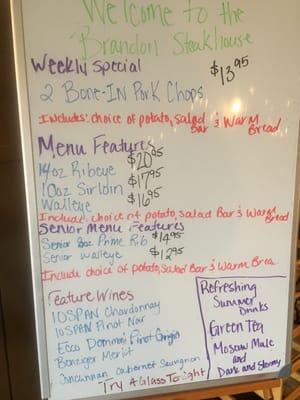 Welcome to the
Brandon Steakhouse
Weekly Special $13.95
2 Bone-In Pork Chops
Includes: choice of potato, salad
Bar & Warm
Bread
Menu Features
14oz Ribeye $20.95
10oz Sirloin $17.95
Walleye $16.95
Include: choice of potato, salad Bar & Warm
Bread
Senior Menu Features
Senior 8oz Prime Rib $14.95
Senior Walleye $12.95
Include choice of potato, Salad Bar & Warm Brea
Feature Wines
10SPAN Chardonnay
10SPAN Pinot Noir
Ecco Domani Pinot Grigio
Benziger Merlot
Cabernet Sauvignon
Try A Glass Tonight
Refreshing
Summer
Drinks
Green Tea
Moscow Mule
and
Dark and Stormy